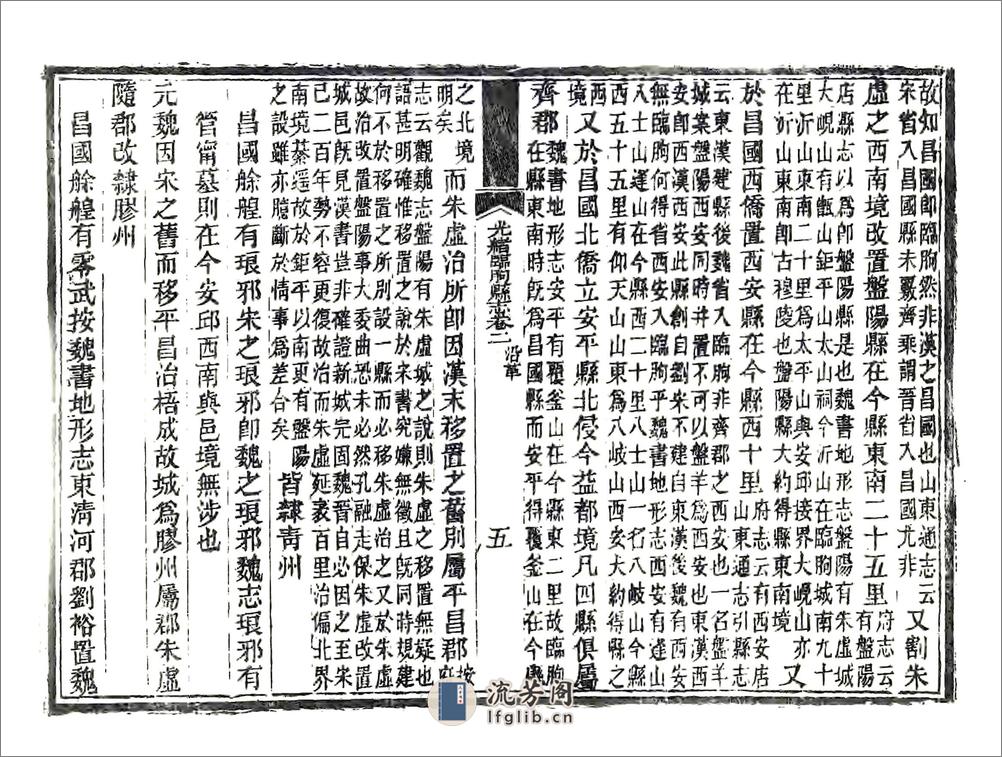 故知昌國卽臨朐然非漢之昌國也山東通志云
宋省入昌國縣未覈齊乘謂晉省入昌國尤非
又割朱
虛之西南境改置盤陽縣在今縣東南二十五里
府志云
有盤陽
店縣志以爲卽盤陽縣是也魏書地形志盤陽有朱虛城
大峴山有甑山鉅平山太山祠今沂山在臨朐城南九十
里沂山東南二十里爲太平山與安邱接界大峴山亦
在沂山東南卽古穆陵也盤陽大約得縣東南境
又
於昌國西僑置西安縣在今縣西十里
府志云有西安店
山東通志引縣志
云東漢建縣後魏省入臨朐非齊郡之西安也東漢西安
城案盤陽西安同時并置不可以盤羊爲西安又一名盤羊
安卽西漢西安此縣創自劉宋不建自東漢後魏有西安
無臨朐何得省西安入臨朐乎魏書地形志西安有逢山
入士山逢山在今縣西二十里八士山一名八岐山今縣
西五十五里有仰天山山東爲八岐山西安大約得縣之
西
境又於昌國北僑立安平縣北侵今益都境凡四縣俱屬
齊郡
魏書地形志安平有覆釜山在今縣東二里故臨朐
在縣東南時旣爲昌國縣而安平得覆釜山在今縣
光緒臨朐縣志卷二
沿革
五
之北境
明矣
而朱虛治所卽因漢末移置之舊別屬平昌郡
按
府
志云觀魏志盤陽有朱虛城之說則朱虛之移置無疑也
語甚明確惟移置之說於宋書究嫌無徵且旣同時規建
何不於移置之所別設一縣而必移朱虛治之又於朱虛
故治改置盤陽事大委曲恐未必然孔融走保朱虛改置
城邑旣見漢書豈非確證新城完固魏晉自必因之至宋
已二百年勢不容更復故治而朱虛延袤百里治偏北界
南境綦遥故於鉅平以南更有盤陽
之設雖亦臆斷於情事爲差合矣
皆隸靑州
昌國艅艎有琅邪朱之琅邪卽魏之琅邪魏志琅邪有
管甯墓則在今安邱西南與邑境無涉也
元魏因宋之舊而移平昌治梧成故城爲膠州屬郡朱虛
隨郡改隸膠州
昌國艅艎有零武按魏書地形志東清河郡劉裕置魏
流芳阁
lfglib.cn